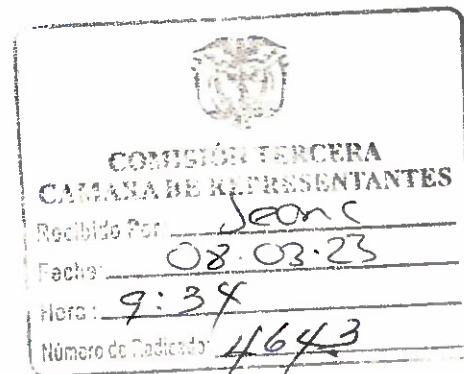 COMISIÓN TERCERA
CAMARA DE REPRESENTANTES
Recibido Por: Jeanc
Fecha: 08.03.23
Hora: 9:34
Número de Radicado: 4643